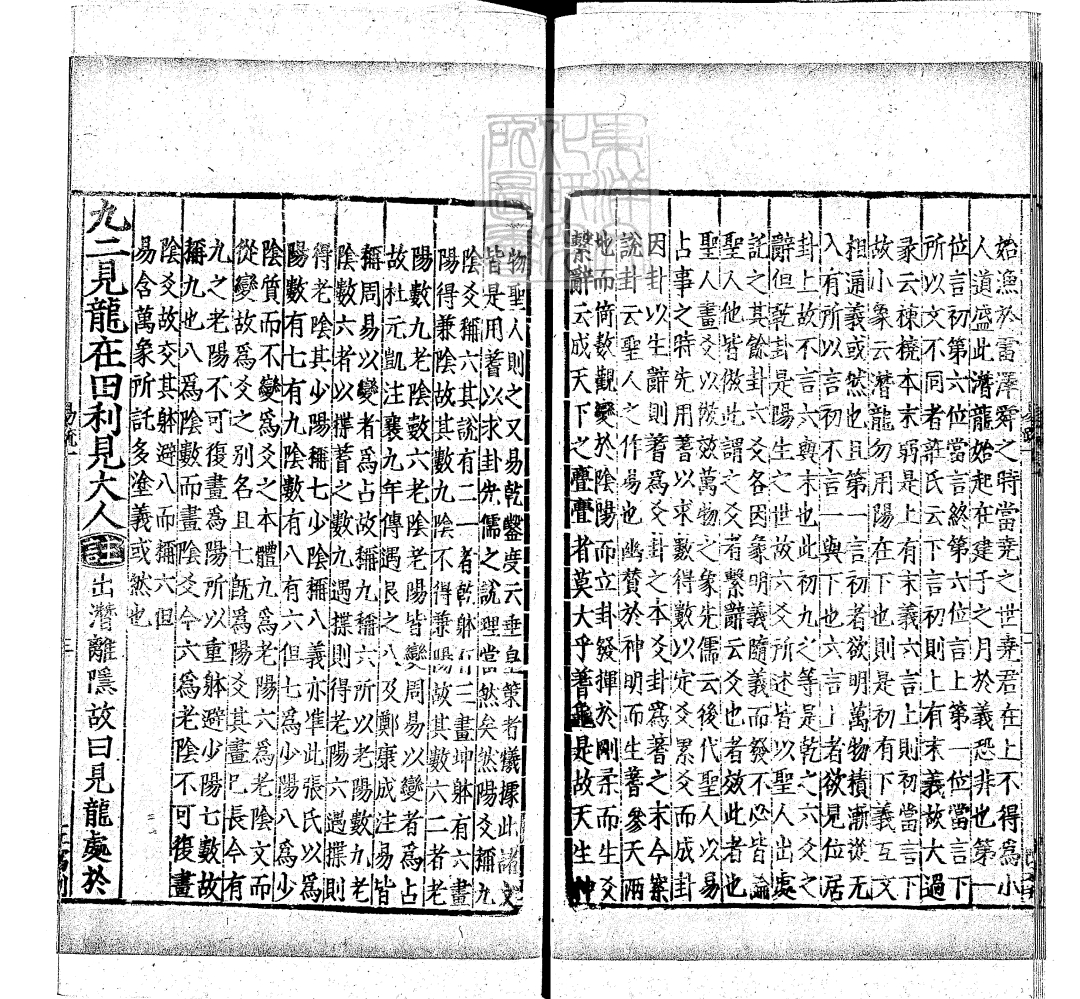 始漁於雷澤舜之時當堯之世堯君在上不得爲小
人道盛此潛龍始起在建子之月於義恐非也第一
位言初第六位當言終第六位言上第一位當言下
所以文不同者莊氏云下言初則上有末義故大過
彖云棟橈本末弱是上有末義六言上則初當言下
故小象云潛龍勿用陽在下也則是初有下義互文
相通義或然也且第一言初者欲明萬物積漸從无
入有所以言初不言一與下也六言上者欲見位居
卦上故不言六與末也此初九之等是乾之六爻之
辭但乾卦是陽生之世故六爻所述皆以聖人出處
託之其餘卦六爻各因象明義隨義而發不必皆論
聖人他皆倣此謂之爻者繫辭云爻也者效此者也
聖人畫爻以倣效萬物之象先儒云後代聖人以易
占事之時先用蓍以求數得數以定爻累爻而成卦
因卦以生辭則蓍爲爻卦之本爻卦爲蓍之末今案
說卦云聖人之作易也幽贊於神明而生蓍參天兩
地而倚數觀變於陰陽而立卦發揮於剛柔而生爻
繫辭云成天下之亹亹者莫大乎蓍龜是故天生神
物聖人則之又易乾鑿度云垂皇策者犧據此諸文
皆是用蓍以求卦先儒之說理當然矣然陽爻稱九
陰爻稱六其說有二一者乾躰有三畫坤躰有六畫
陽得兼陰故其數九陰不得兼陽故其數六二者老
陽數九老陰數六老陰老陽皆變周易以變者爲占
故杜元凱注襄九年傳遇艮之八及鄭康成注易皆
稱周易以變者爲占故稱九稱六所以老陽數九老
陰數六者以揲蓍之數九遇揲則得老陽六遇揲則
得老陰其少陽稱七少陰稱八義亦准此張氏以爲
陽數有七有九陰數有八有六但七爲少陽八爲少
陰質而不變爲爻之本體九爲老陽六爲老陰文而
從變故爲爻之別名且七旣爲陽爻其畫已長今有
九之老陽不可復畫爲陽所以重躰避少陽七數故
稱九也八爲陰數而畫陰爻今六爲老陰不可復畫
陰爻故交其躰避八而稱六但
易含萬象所託多塗義或然也
九二見龍在田利見大人 注 出潛離隱故曰見龍處於